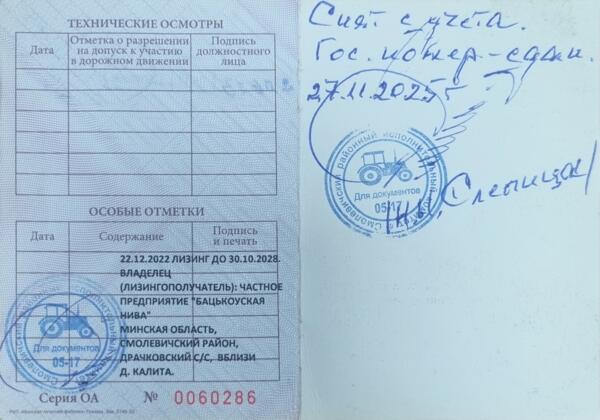 ТЕХНИЧЕСКИЕ ОСМОТРЫ
Дата
Отметка о разрешении на допуск к участию в дорожном движении
Подпись должностного лица
ОСОБЫЕ ОТМЕТКИ
Дата
Содержание
Подпись и печать
22.12.2022 ЛИЗИНГ ДО 30.10.2028.
ВЛАДЕЛЕЦ
(ЛИЗИНГОПОЛУЧАТЕЛЬ): ЧАСТНОЕ
ПРЕДПРИЯТИЕ "БАЦЬКОУСКАЯ
НИВА"
МИНСКАЯ ОБЛАСТЬ,
СМОЛЕВИЧСКИЙ РАЙОН,
ДРАЧКОВСКИЙ С/С, ВБЛИЗИ
Д. КАЛИТА.
Для документов
05-17
Серия ОА № 0060286
Снят с учета.
Гос. номер - сдан.
27.11.2025г
Смолевичский районный исполнительный
Для документов
05-17